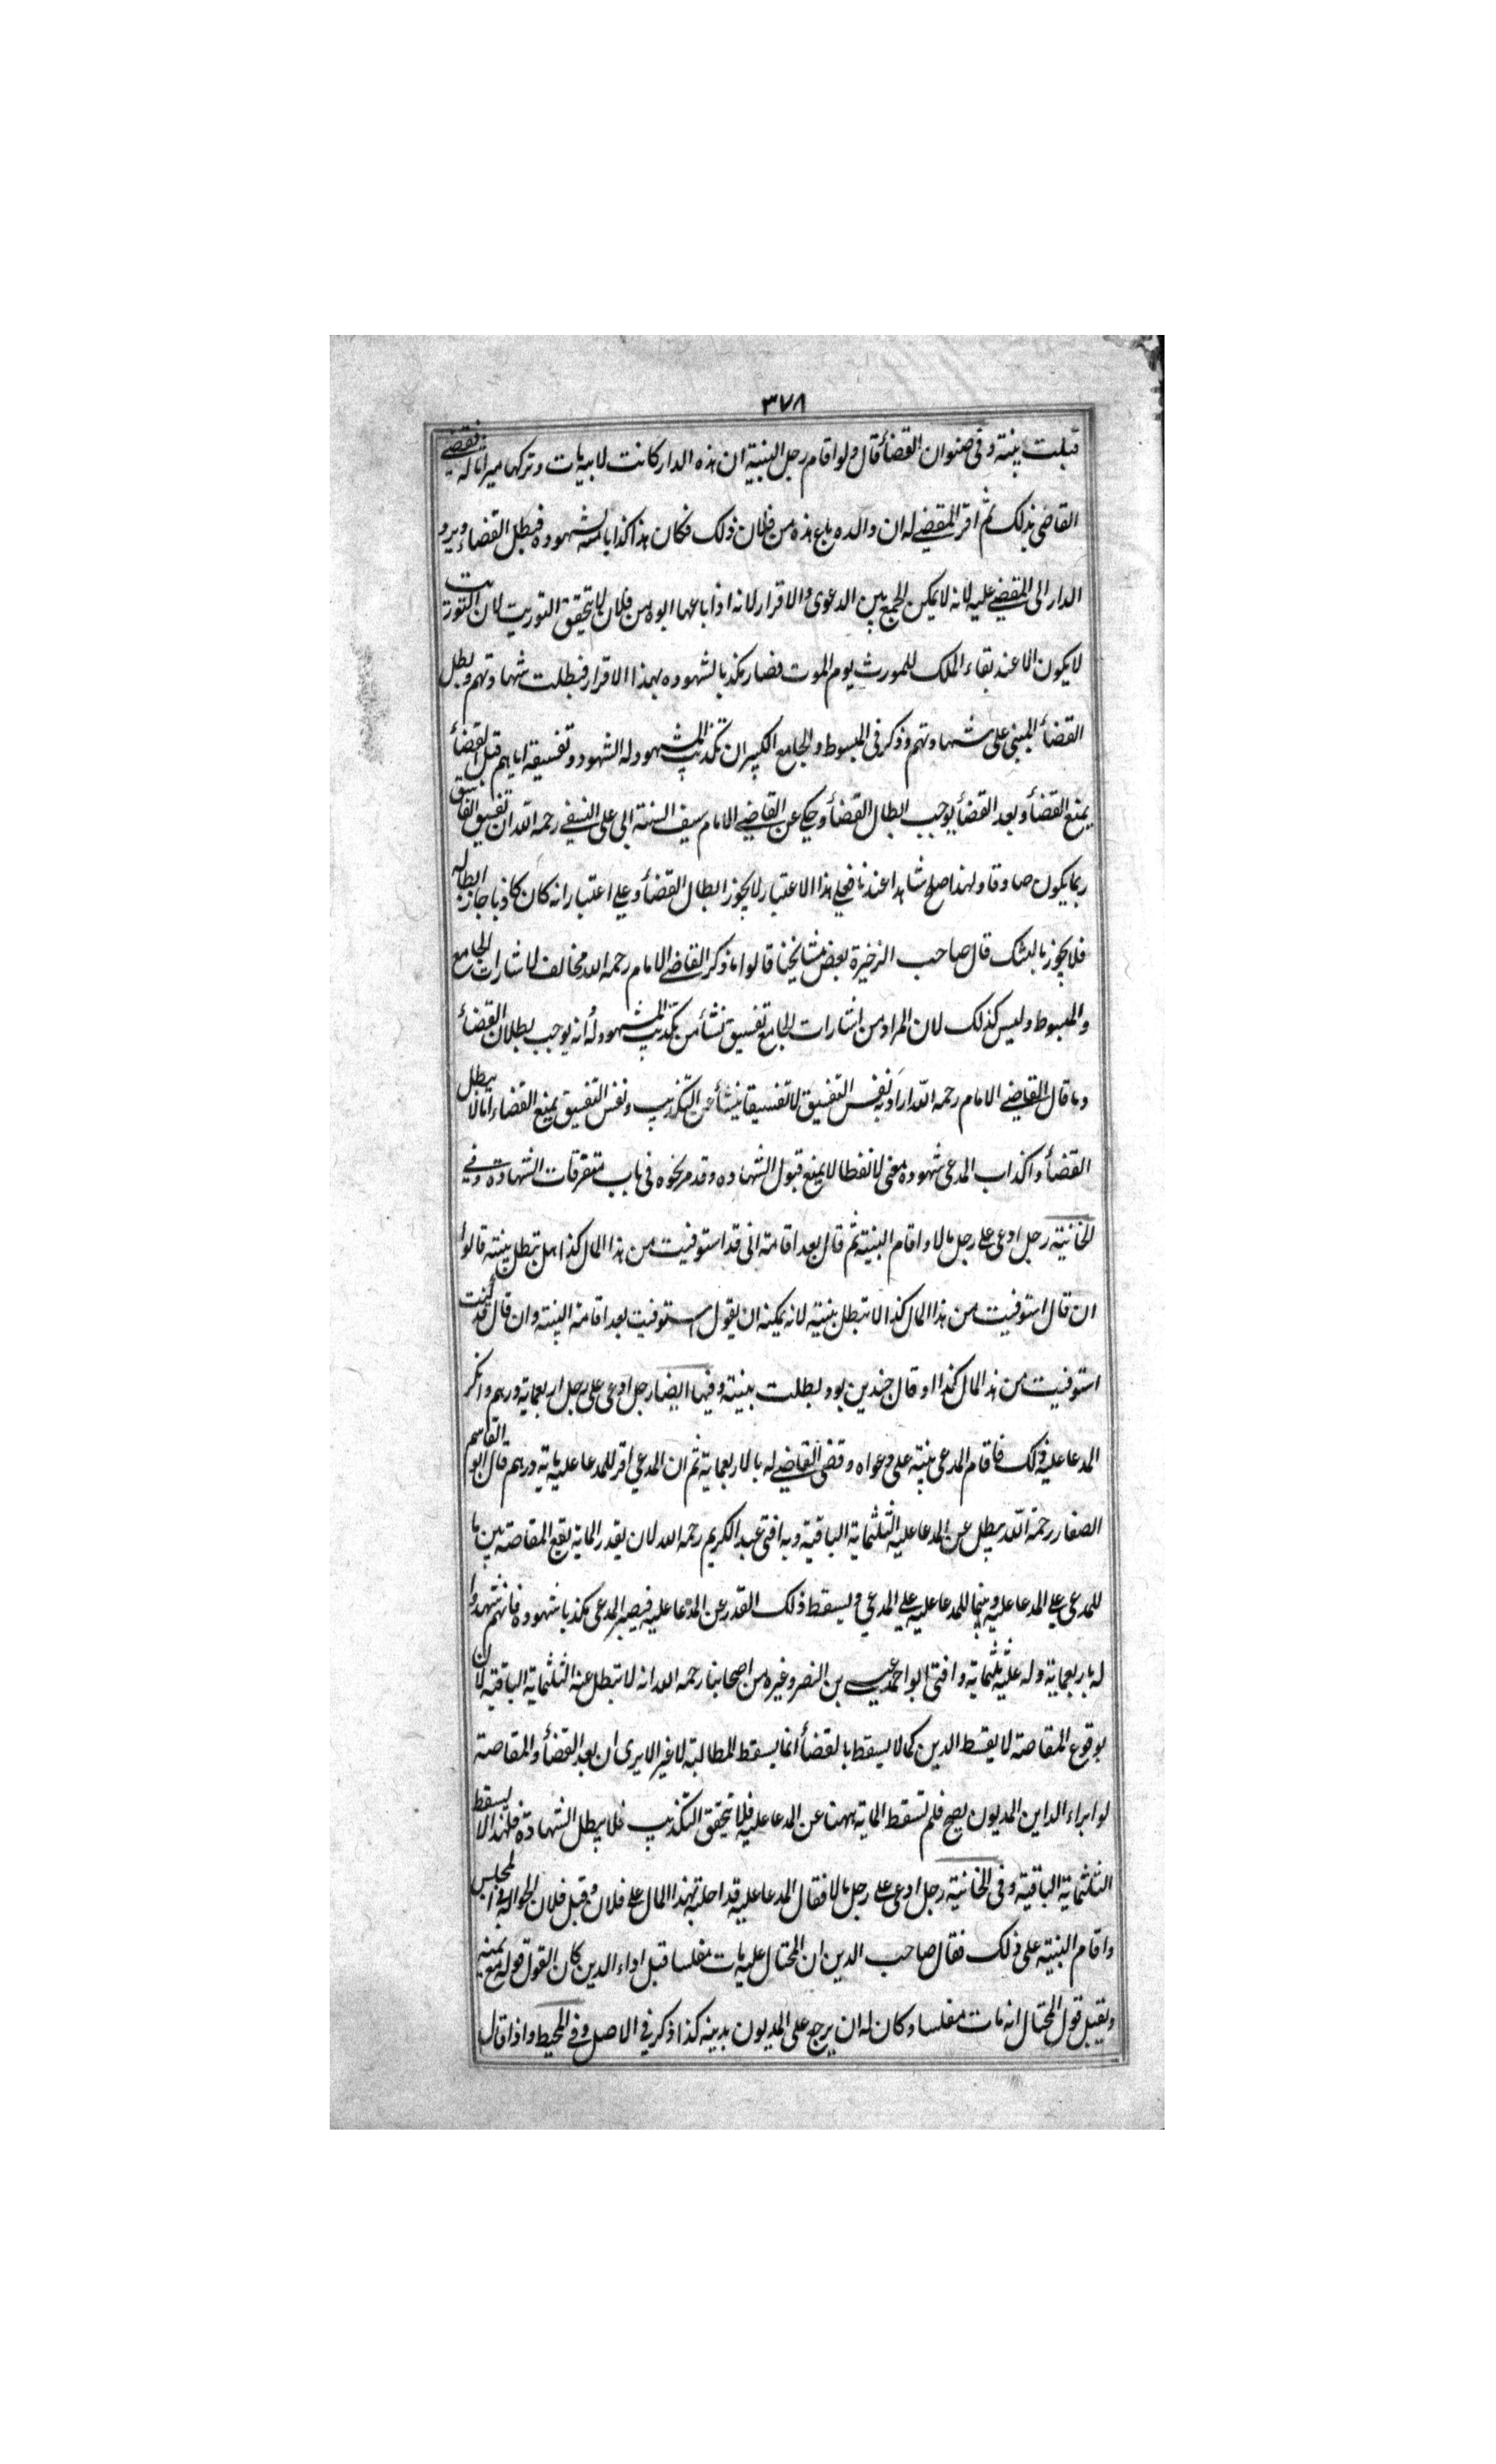 ٣٧٨
قبلت بينته وفى صنوان القضأ قال ولو اقام رجل البينة ان هذه الدار كانت لابيه مات وتركها ميراثا له فقضے
القاضى بذلك ثم اقر المقضے له ان والده باع هذه من فلان ذلك فكان هذا كذابا منه لشهوده فيبطل القضاء ويرد
الدار الى المقضے عليه لانه لا يمكن الجمع بين الدعوى والاقرار لانه اذا باعها ابوه من فلان لا يتحقق التوريت لان التوريت
لا يكون الا عند بقاء الملك للمورث يوم الموت فصار مكذبا لشهوده بهذا الاقرار فبطلت شهادتهم وبطل
القضأ المبنى على شهادتهم وذكر فى المبسوط والجامع الكبير ان تكذيب المشهود له الشهود وتفسيقه اياهم قبل القضأ
يمنع القضأ وبعد القضأ يوجب ابطال القضأ وحكے عن القاضے الامام سيف السنة ابى على النسفے رحمه الله ان تفسيق الفاسق
ربما يكون صادقا ولهذا صلح شاهدا عندنا فعلے هذا الاعتبار لا يجوز ابطال القضأ وعلے اعتبار انه كان كاذبا جاز ابطاله
فلا يجوز بالشك قال صاحب الذخيرة بعض مشايخنا قالوا ما ذكر القاضے الامام رحمه الله مخالف لاشارات الجامع
والمبسوط وليس كذلك لان المراد من اشارات الجامع تفسيق نشأ من تكذيب المشهود له انه يوجب بطلان القضأ
وما قال القاضے الامام رحمه الله اراد به نفس التفسيق لا تفسيقا ينشأ عن التكذيب ونفس التفسيق يمنع القضاء اما لا يبطل
القضأ واكذاب المدعى شهوده معنى لا لفظا لا يمنع قبول الشهاده وقد مر نحوه فى باب متفرقات الشهادت وفے
الخانية رجل ادعى علے رجل مالا واقام البينة ثم قال بعد اقامته انى قد استوفيت من هذا المال كذا هل تبطل بينته قالوا
ان قال استوفيت من هذا المال كذا لا تبطل بينته لانه يمكنه ان يقول استوفيت بعد اقامة البينة وان قال قد كنت
استوفيت من هذا المال كذا او قال چندين بود بطلت بينته وفيها ايضا رجل ادعى على رجل اربعماية درهم وانكر
المدعا عليه ذلك فاقام المدعى بينة على دعواه وقضى القاضے له بالاربعماية ثم ان المدعي اقر للمدعا عليه بماية درهم قال ابو القاسم
الصفار رحمة الله يبطل عن المدعا عليه الثلثماية الباقية وبه افتى عبد الكريم رحمه الله لان بقدر الماية يقع المقاصة بين ما
للمدعى علے المدعا عليه وبين ما للمدعا عليه علے المدعي ويسقط ذلك القدر عن المدعا عليه فيصير المدعى مكذبا شهوده فانهم شهدوا
له باربعماية وله عليه ثلثماية وافتى ابو احمد عيسے بن النصر وغيره من اصحابنا رحمه الله انه لا تبطل عنه الثلثماية الباقية لان
بوقوع المقاصة لا يسقط الدين كما لا يسقط بالقضأ انما يسقط المطالبة لا غير الا يرى ان بعد القضأ والمقاصة
لو ابراء الداين المديون يصح فلم تسقط الماية ههنا عن المدعا عليه فلا تحقق التكذيب فلا يبطل الشهادة فلهذا لا يسقط
الثلثماية الباقية وفى الخانية رجل ادعى علے رجل مالا فقال المدعا عليه قد احلته بهذا المال علے فلان وقبل فلان الحوالة فى المجلس
واقام البينة على ذلك فقال صاحب الدين ان المحتال عليه مات مفلسا قبل اداء الدين كان القول قوله مع يمينه
ويقبل قول المحتال انه مات مفلسا وكان له ان يرجع على المديون بدينه كذا ذكر في الاصل وفے المحيط واذا قال